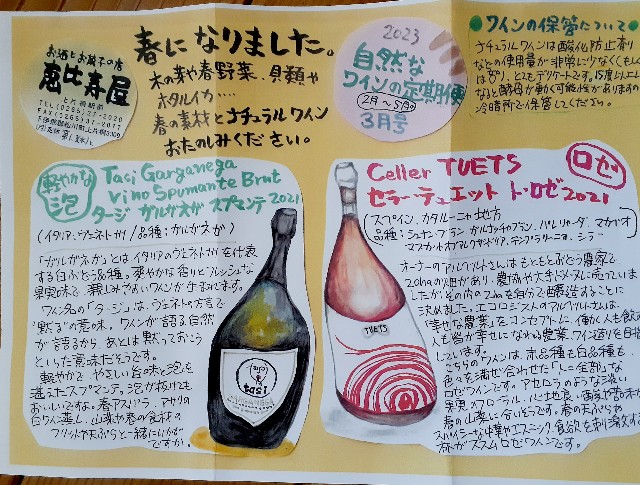 お酒とお菓子の店
恵比寿屋
上片桐駅前
TEL (0265)37-2020
FAX (0265)37-2077
春になりました。
木の芽や春野菜、貝類や
ホタルイカ....
春の素材とナチュラルワイン
おたのしみください。
2023
自然な
ワインの定期便
2月〜5月の
3月号
ワインの保管について
ナチュラルワインは酸化防止剤
などの使用量が非常に少なくもしく
は無し、とてもデリケートです。15度以上に
なると酵母が動く可能性がありますので
冷暗所で保管してください。
軽やかな
泡
Tasi Garganega
Vino Spumante Brut
タージ ガルガネガ スプマンテ 2021
(イタリア、ヴェネト州/品種:ガルガネガ)
「ガルガネガ」とはイタリアのヴェネト州を代表
する白ぶどう品種。爽やかな香りとフレッシュな
果実味で、親しみやすいワインが生まれます。
ワイン名の「タージ」は、ヴェネトの方言で
"黙る"の意味。ワインが語る、自然
が語るから、あとは黙っておこう
といった意味だそうです。
軽やかで、やさしい旨味と泡を
備えたスプマンテ。泡が抜けても
おいしいですよ。春アスパラ、アサリの
白ワイン蒸し、山菜や春の食材の
フリットや天ぷらと一緒にいかが
ですか。
tasi
ロゼ
Celler TUETS
セラー・テュエット ト・ロゼ 2021
(スペイン、カタルーニャ地方
品種:シュナン・ブラン、ガルナッチャブラン、パレリャーダ、マカベオ
マスカット・オブ・アレクサンドリア、テンプラリーニョ、シラー
オーナーのアルベルトさんはもともとぶどう農家で
20haの畑があり、農協や大手メーカーに売っていま
したが、その内の2haを自分で醸造することに
決めました。エコロジスムのアルベルトさんは、
「幸せな農業」をコンセプトに、働く人も飲む
人も皆が幸せになれる農業、ワイン造りを目指
しています。
こちらのワインは、赤品種も白品種も
色々を混ぜ合わせた「トー（全部）」な
ロゼワインです。アセロラのような赤い
春の山菜に合いそうです。春の天ぷらや
スパイシーな中華やエスニック、食欲を刺激する
杯がススムロゼワインです。
TUETS